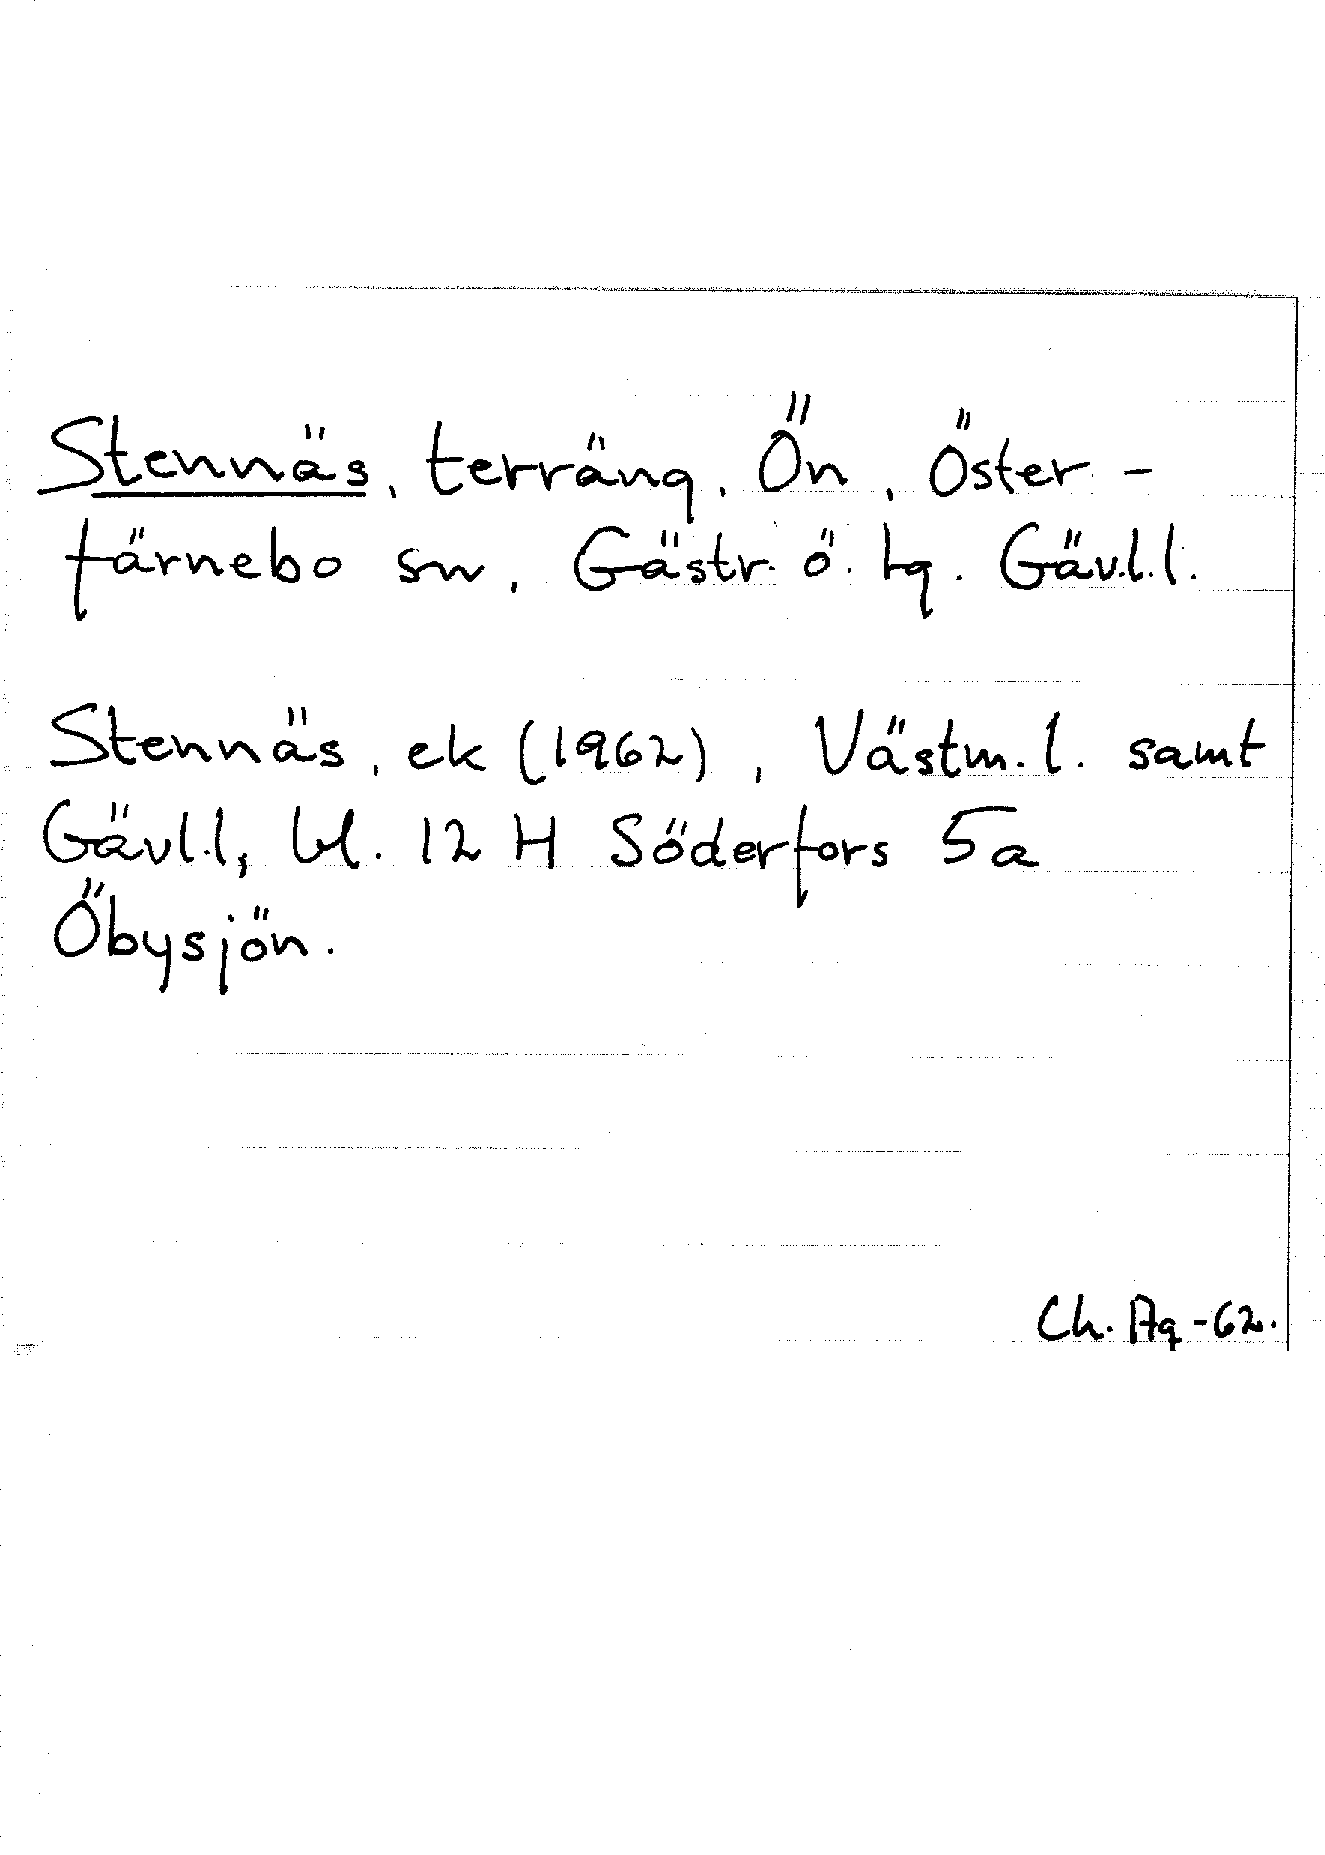 Stennäs, terräng, Ön, Öster-
färnebo sn, Gästr. ö. tg. Gäv.l.l.
Stennäs, ek (1962), Västm. l. samt
Gävl.l, bl. 12 H Söderfors 5a
Öbysjön.
Ch. Ag -62.